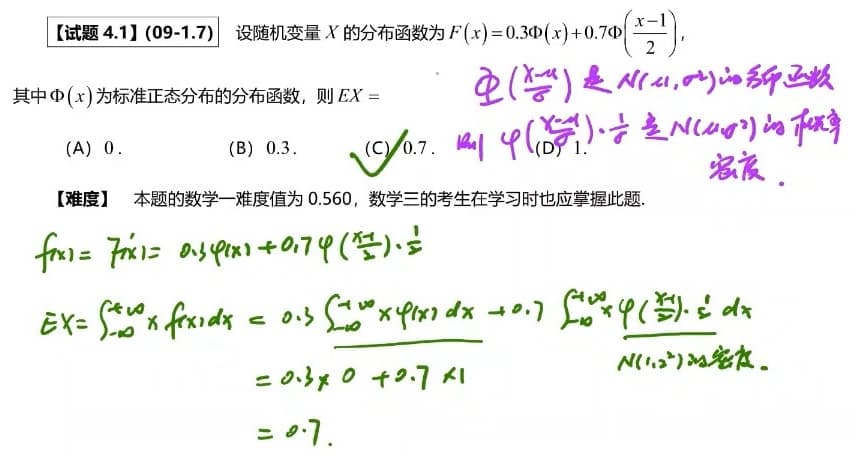 【试题 4.1】(09-1.7) 设随机变量 X 的分布函数为 F(x)=0.3Φ(x)+0.7Φ((x−1)/2),
其中Φ(x)为标准正态分布的分布函数，则 EX =
Φ((x-μ)/σ) 是 N(μ,σ²) 的分布函数
(A) 0. (B) 0.3. (C) 0.7. (D) 1.
则 φ((x-μ)/σ)·1/σ 是 N(μ,σ²) 的概率
密度.
【难度】 本题的数学一难度值为 0.560，数学三的考生在学习时也应掌握此题.
f(x) = F'(x) = 0.3φ(x)+0.7φ((x-1)/2)·1/2
EX = ∫_{-∞}^{+∞} x f(x)dx = 0.3 ∫_{-∞}^{+∞} xφ(x) dx + 0.7 ∫_{-∞}^{+∞} xφ((x-1)/2)·1/2 dx
N(1,2²)的密度.
= 0.3×0 + 0.7×1
= 0.7.